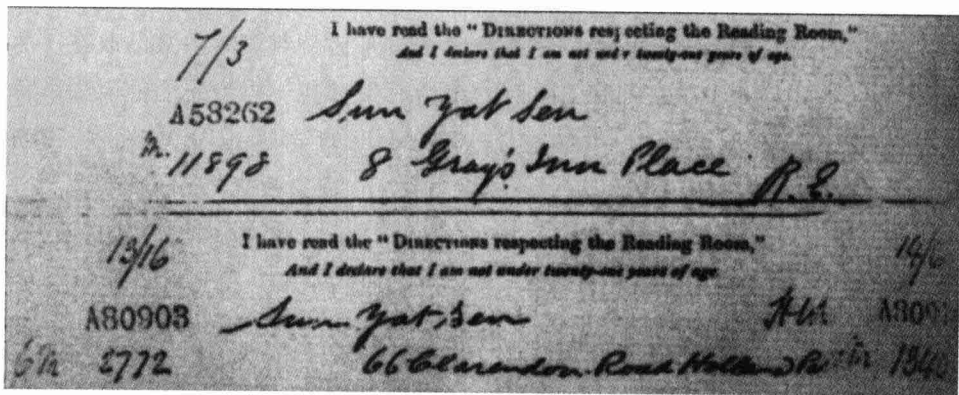 I have read the "DIRECTIONS respecting the Reading Room,"
And I declare that I am not under twenty-one years of age.
7/3
A53262 Sun Yat Sen
11898 8 Gray's Inn Place R.E.
I have read the "DIRECTIONS respecting the Reading Room,"
And I declare that I am not under twenty-one years of age.
13/16 14/6
A80903 Sun Yat Sen
2772 66 Clarendon Road Holland